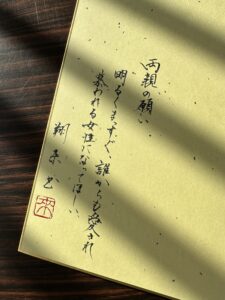 両親の願い
明るくまっすぐ誰からも愛され
慕われる女性になってほしい